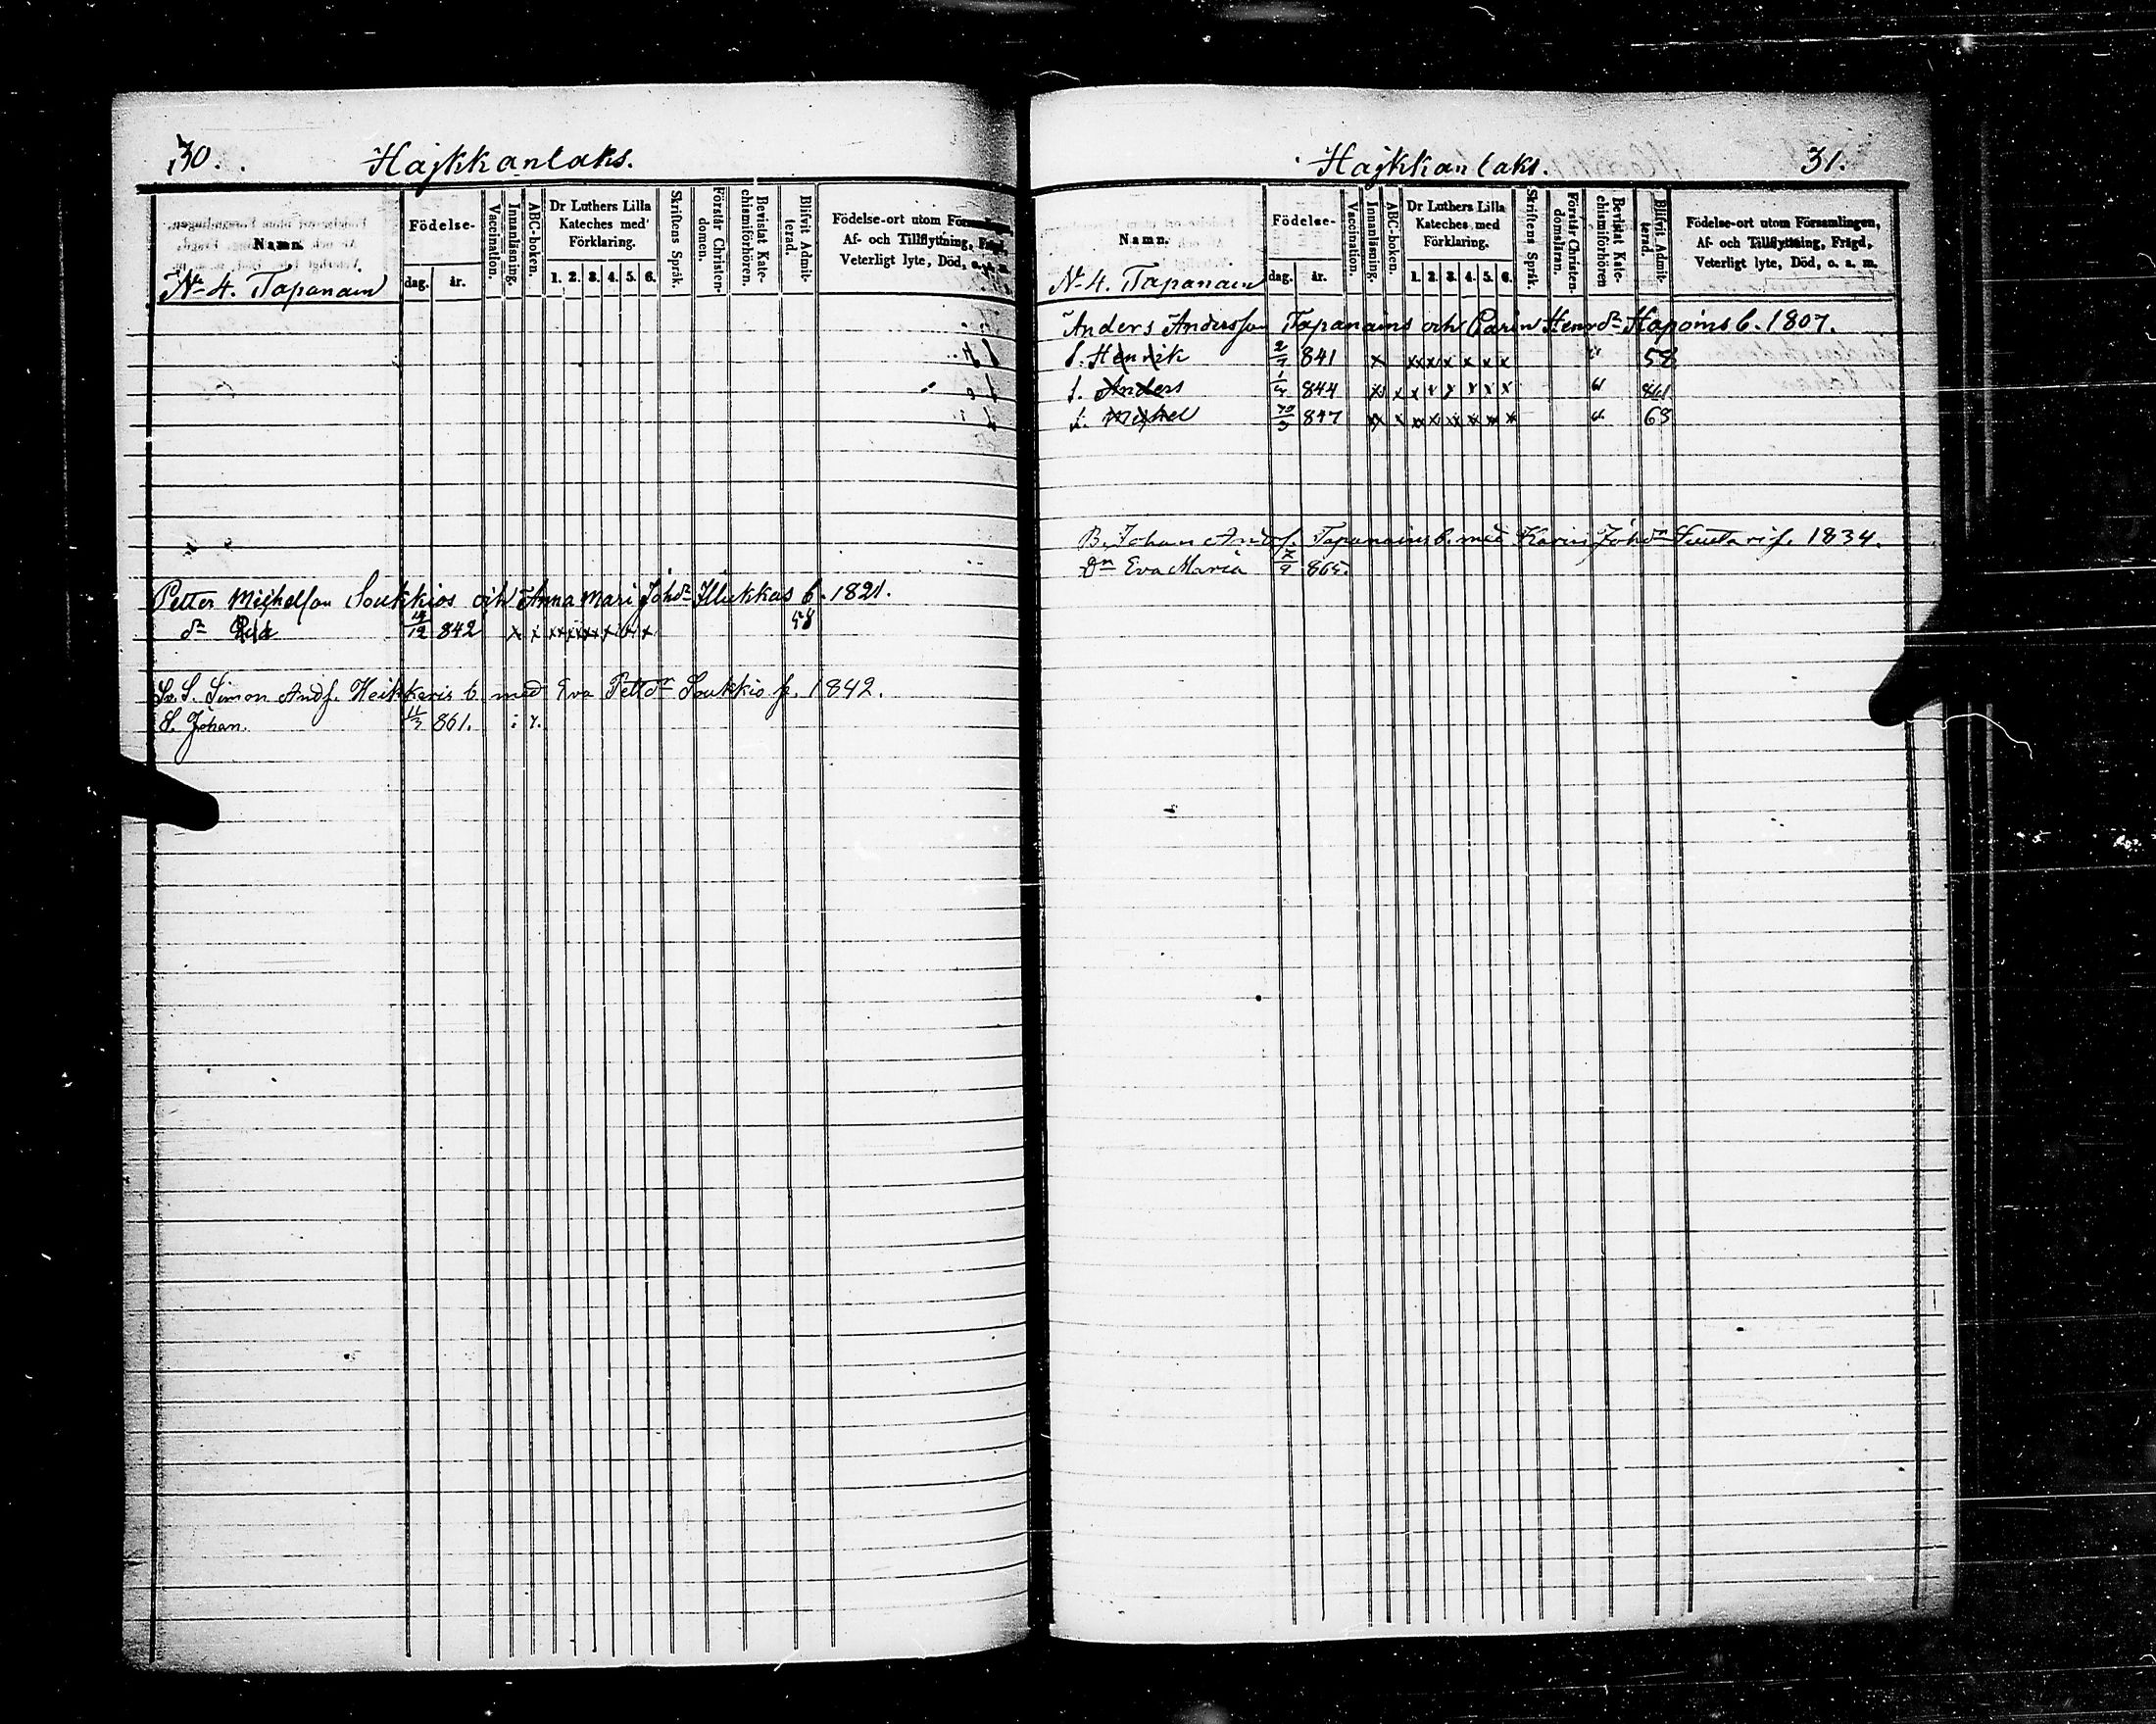 30.
Hajkkanlaks.
Namn.
Födelse-
dag.
år.
Vaccination.
Innanläsning.
ABC-boken.
Dr Luthers Lilla
Kateches med
Förklaring.
1. 2. 3. 4. 5. 6.
Skriftens Språk.
Förstår Christen-
domen.
Bevistat Kate-
chismiförhören.
Blifvit Admit-
terad.
Födelse-ort utom Församlingen,
Af- och Tillflyttning, Frägd,
Veterligt lyte, Död, o. a. m.
No 4. Tapanain
Petter Michelson Soukkios och Anna Mari Johdr Illukkas b. 1821.
dr 12 842 x x x x x x x x 58
Sr S. Simon Ands. Heikkeris b. med Eva Pettdr Soukkio f. 1842.
S. Johan. 11/3 861.
Hajkkanlaks.
31.
Namn.
Födelse-
dag.
år.
Vaccination.
Innanläsning.
ABC-boken.
Dr Luthers Lilla
Kateches med
Förklaring.
1. 2. 3. 4. 5. 6.
Skriftens Språk.
Förstår Christen-
domsläran.
Bevistat Kate-
chismiförhören
Blifvit Admit-
terad.
Födelse-ort utom Församlingen,
Af- och Tillflyttning, Frägd,
Veterligt lyte, Död, o. a. m.
No 4. Tapanain
Anders Andersson Tapanains och Carin Henrdr Hapoins b. 1807.
S. Henrik 2/7 841 x x x x x x x " 58
S. Anders 1/4 844 x x x x x x x x "
S. Michel 847 x x x x x x x x " 63
B. Johan Ands. Tapanains b. med Karin Johdr f. 1834.
Dr Eva Maria 7/9 865.